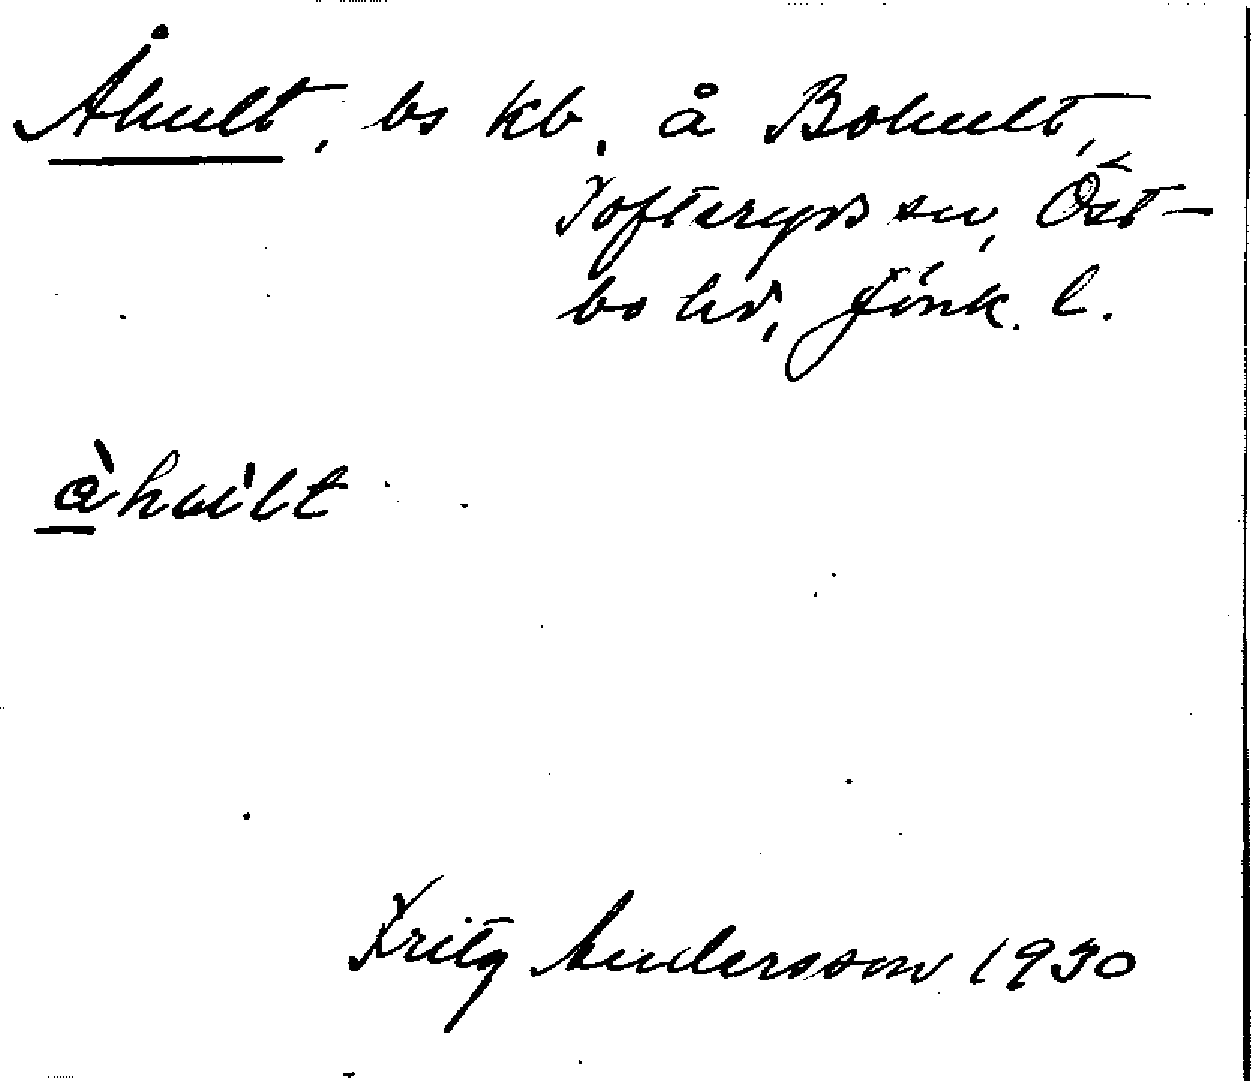 Åhult, bs kb, å Bohult,
Tofteryds sn, Öst-
bo hd, Jönk. l.
å̀hu̍lt
Fritz Andersson 1930